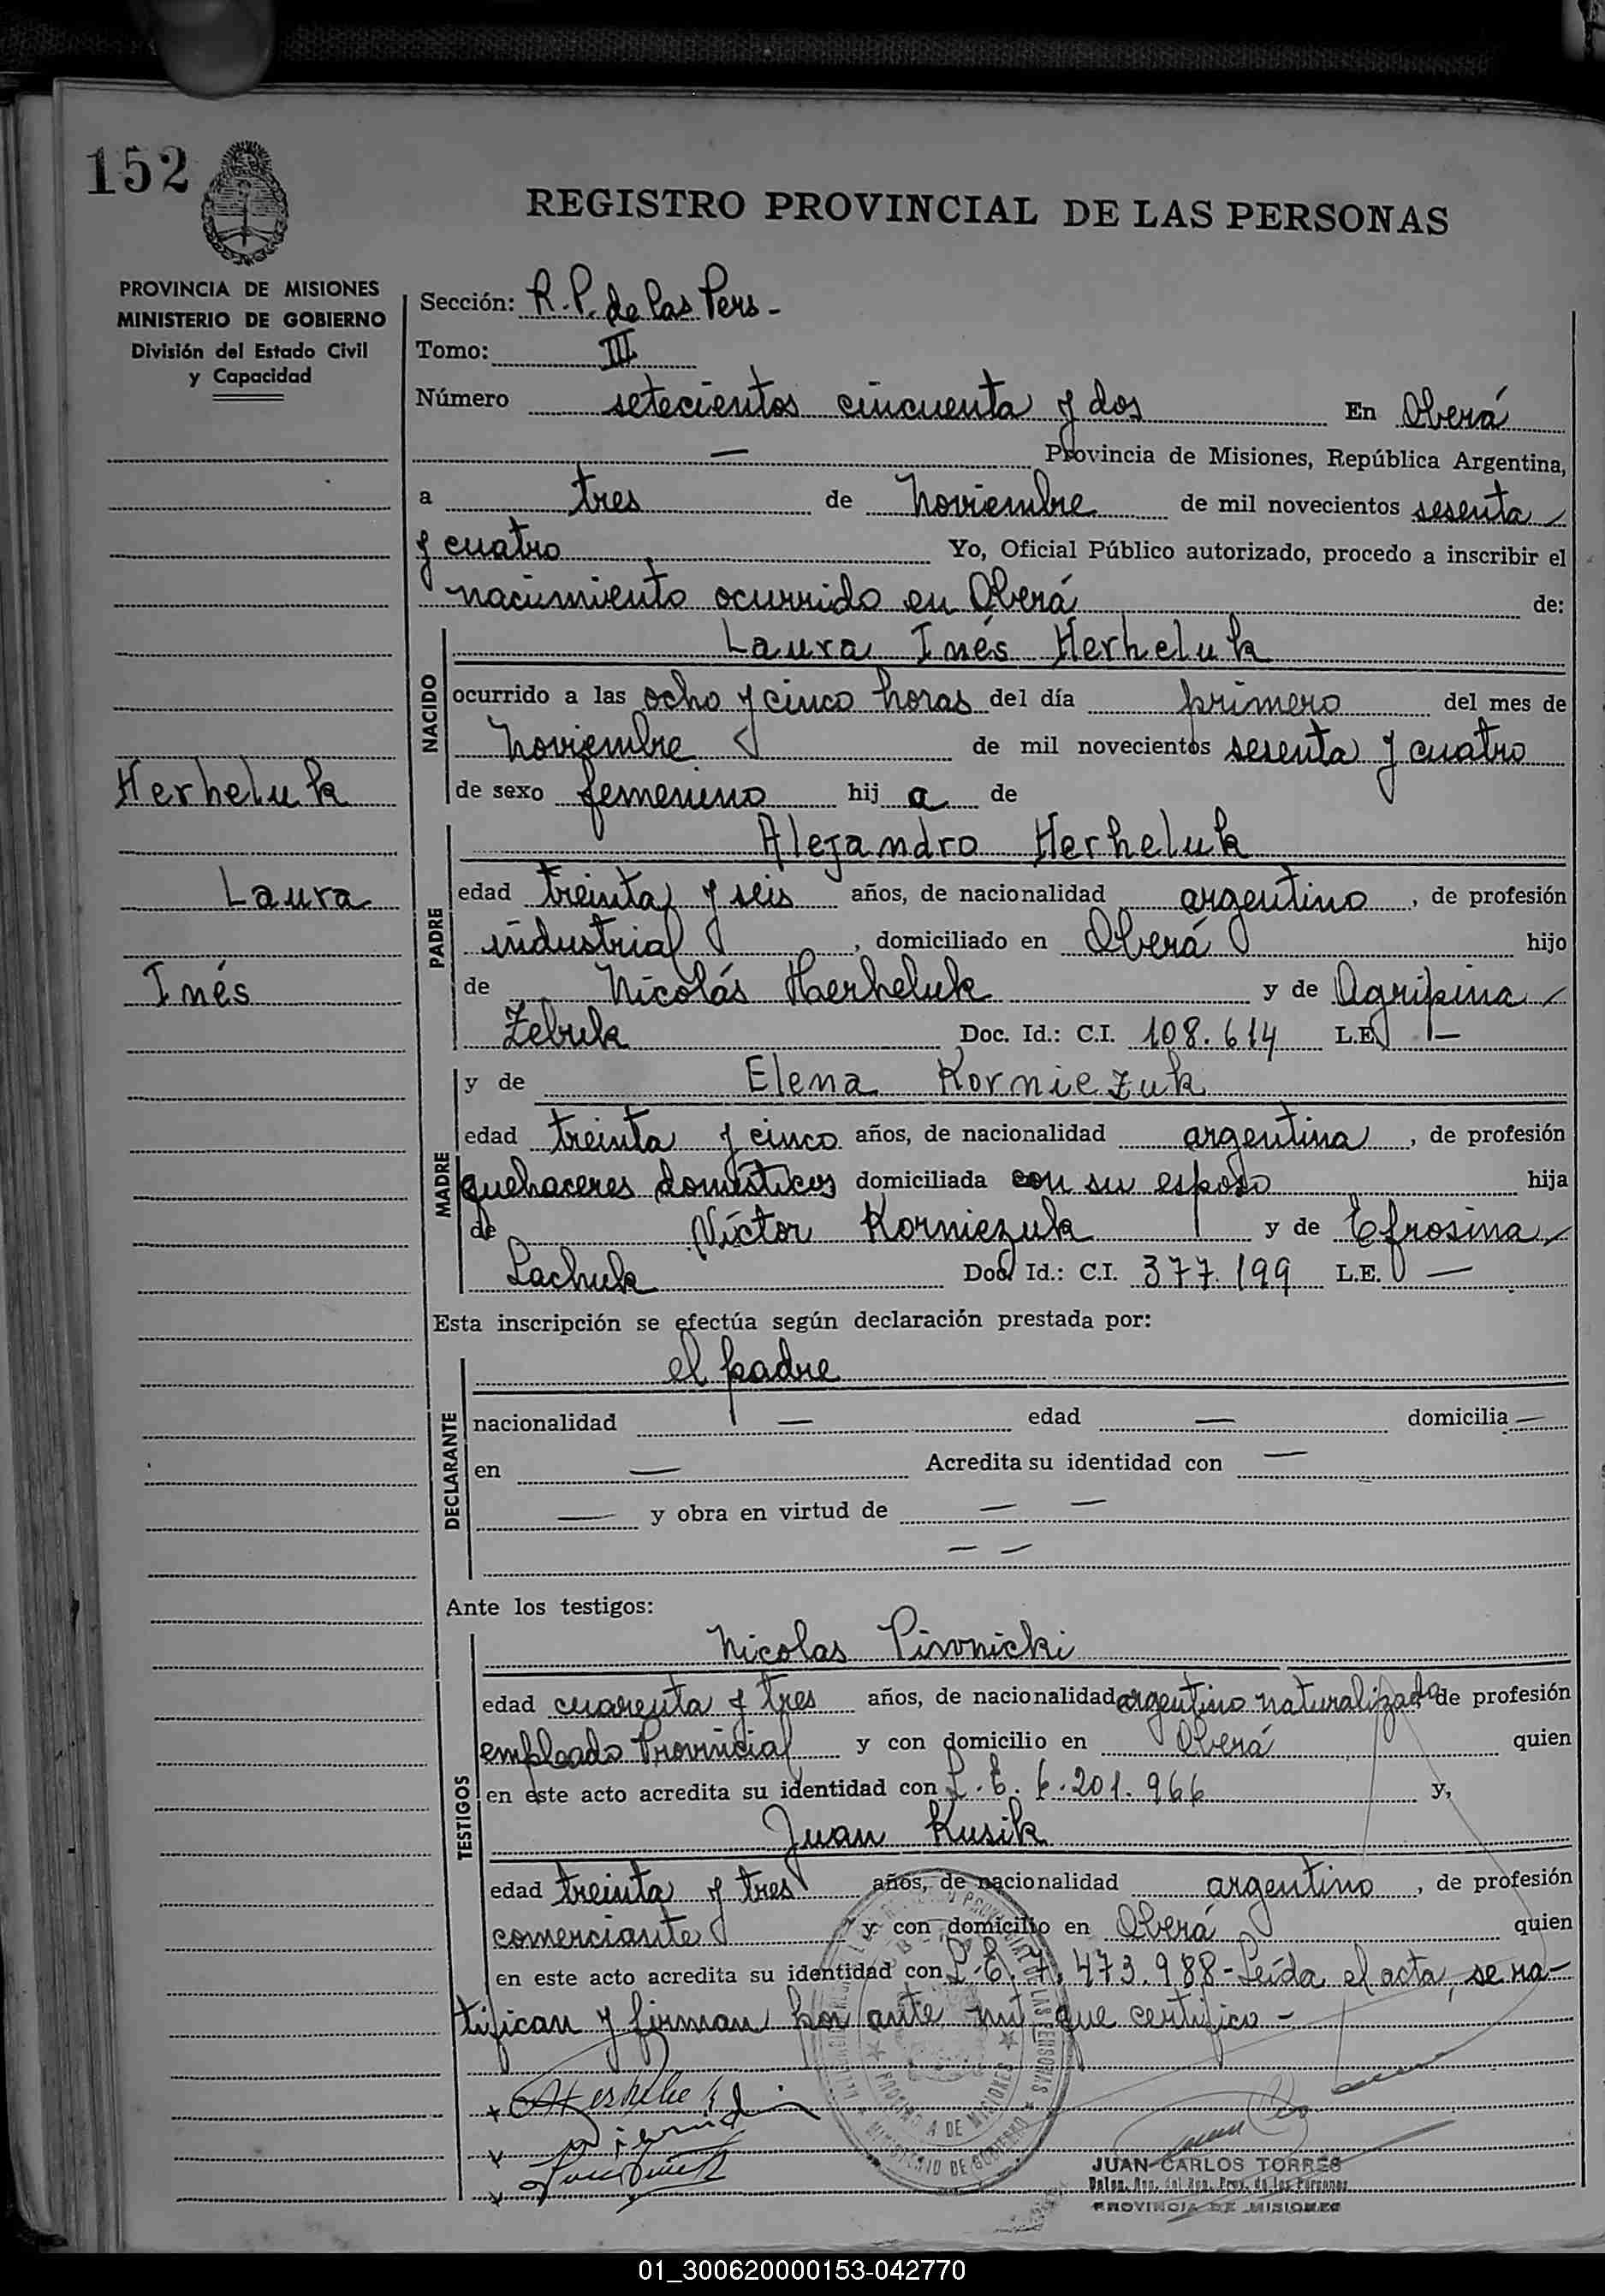 152
REGISTRO PROVINCIAL DE LAS PERSONAS
PROVINCIA DE MISIONES
MINISTERIO DE GOBIERNO
División del Estado Civil
y Capacidad
Herheluk
Laura
Inés
Sección: R.P. de las Pers -
Tomo: III
Número setecientos cincuenta y dos En Oberá
— Provincia de Misiones, República Argentina,
a tres de Noviembre de mil novecientos sesenta
y cuatro Yo, Oficial Público autorizado, procedo a inscribir el
nacimiento ocurrido en Oberá de:
NACIDO
Laura Inés Herheluk
ocurrido a las ocho y cinco horas del día primero del mes de
Noviembre de mil novecientos sesenta y cuatro
de sexo femenino hij a de
PADRE
Alejandro Herheluk
edad treinta y seis años, de nacionalidad argentino, de profesión
industrial, domiciliado en Oberá hijo
de Nicolás Herheluk y de Agripina
Zebruk Doc. Id.: C.I. 108.614 L.E. —
MADRE
y de Elena Korniezuk
edad treinta y cinco años, de nacionalidad argentina, de profesión
quehaceres domésticos domiciliada con su esposo hija
de Víctor Korniezuk y de Efrosina
Lachuk Doc. Id.: C.I. 377.199 L.E. —
Esta inscripción se efectúa según declaración prestada por:
DECLARANTE
el padre
nacionalidad — edad — domicilia —
en — Acredita su identidad con —
— y obra en virtud de — —
— —
Ante los testigos:
TESTIGOS
Nicolas Piwnicki
edad cuarenta y tres años, de nacionalidad argentino naturalizado de profesión
empleado Provincial y con domicilio en Oberá quien
en este acto acredita su identidad con L.E. 6.201.966 y,
Juan Kusik
edad treinta y tres años, de nacionalidad argentino, de profesión
comerciante y con domicilio en Oberá quien
en este acto acredita su identidad con L.E. 7.473.988 - Leída el acta, se ra-
tifican y firman por ante mí que certifico -
PROVINCIA DE MISIONES
MINISTERIO DE GOBIERNO
JUAN CARLOS TORRES
PROVINCIA DE MISIONES
01_300620000153-042770